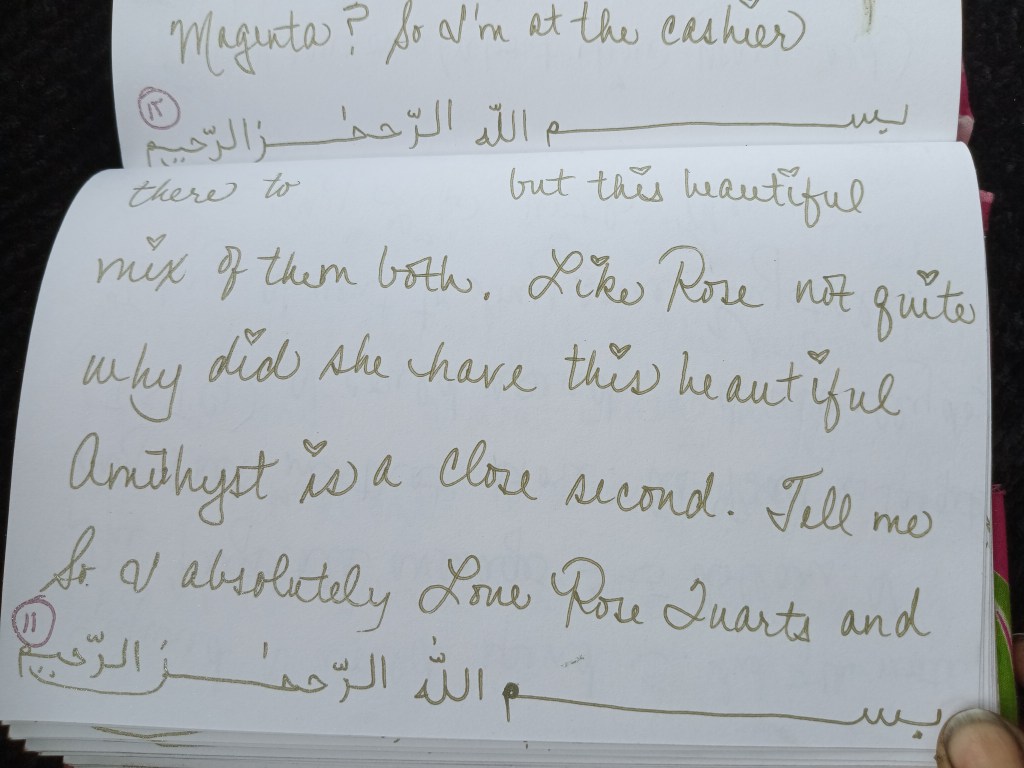 Magenta? So I'm at the cashier
١٢
بسم اللّه الرّحمٰن الرّحيم
there to but this beautiful
mix of them both. Like Rose not quite
why did she have this beautiful
Amithyst is a close second. Tell me
So. I absolutely Love Rose Quarts and
١١
بسم اللّٰه الرّحمٰن الرّحيم